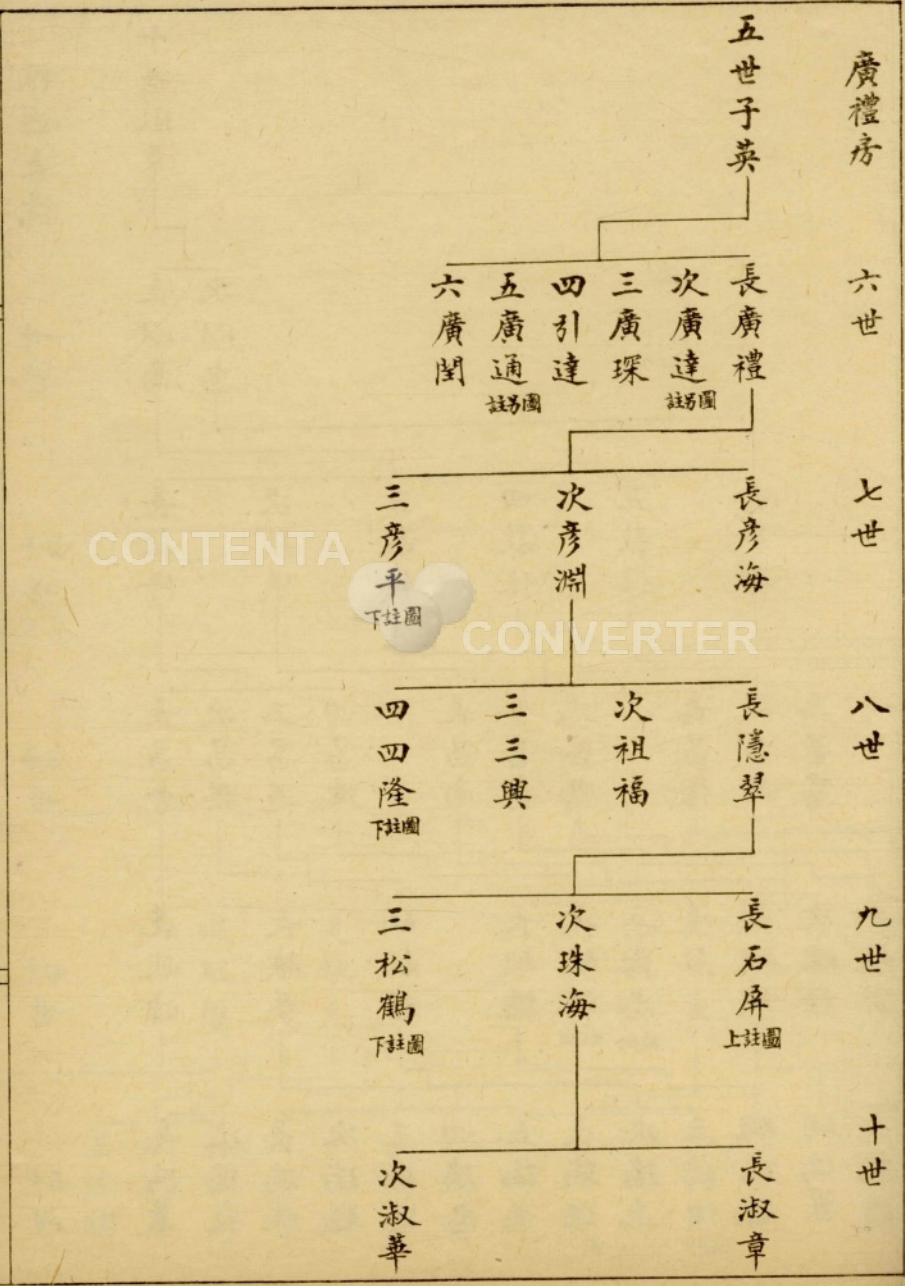 廣禮房
五世子英
六世
長廣禮
次廣達
註另圖
三廣琛
四引達
五廣通
註另圖
六廣閏
七世
長彥海
次彥淵
三彥平
下註圖
八世
長隱翠
次祖福
三三興
四四隆
下註圖
九世
長石屏
上註圖
次珠海
三松鶴
下註圖
十世
長淑章
次淑華
CONTENTA
CONVERTER